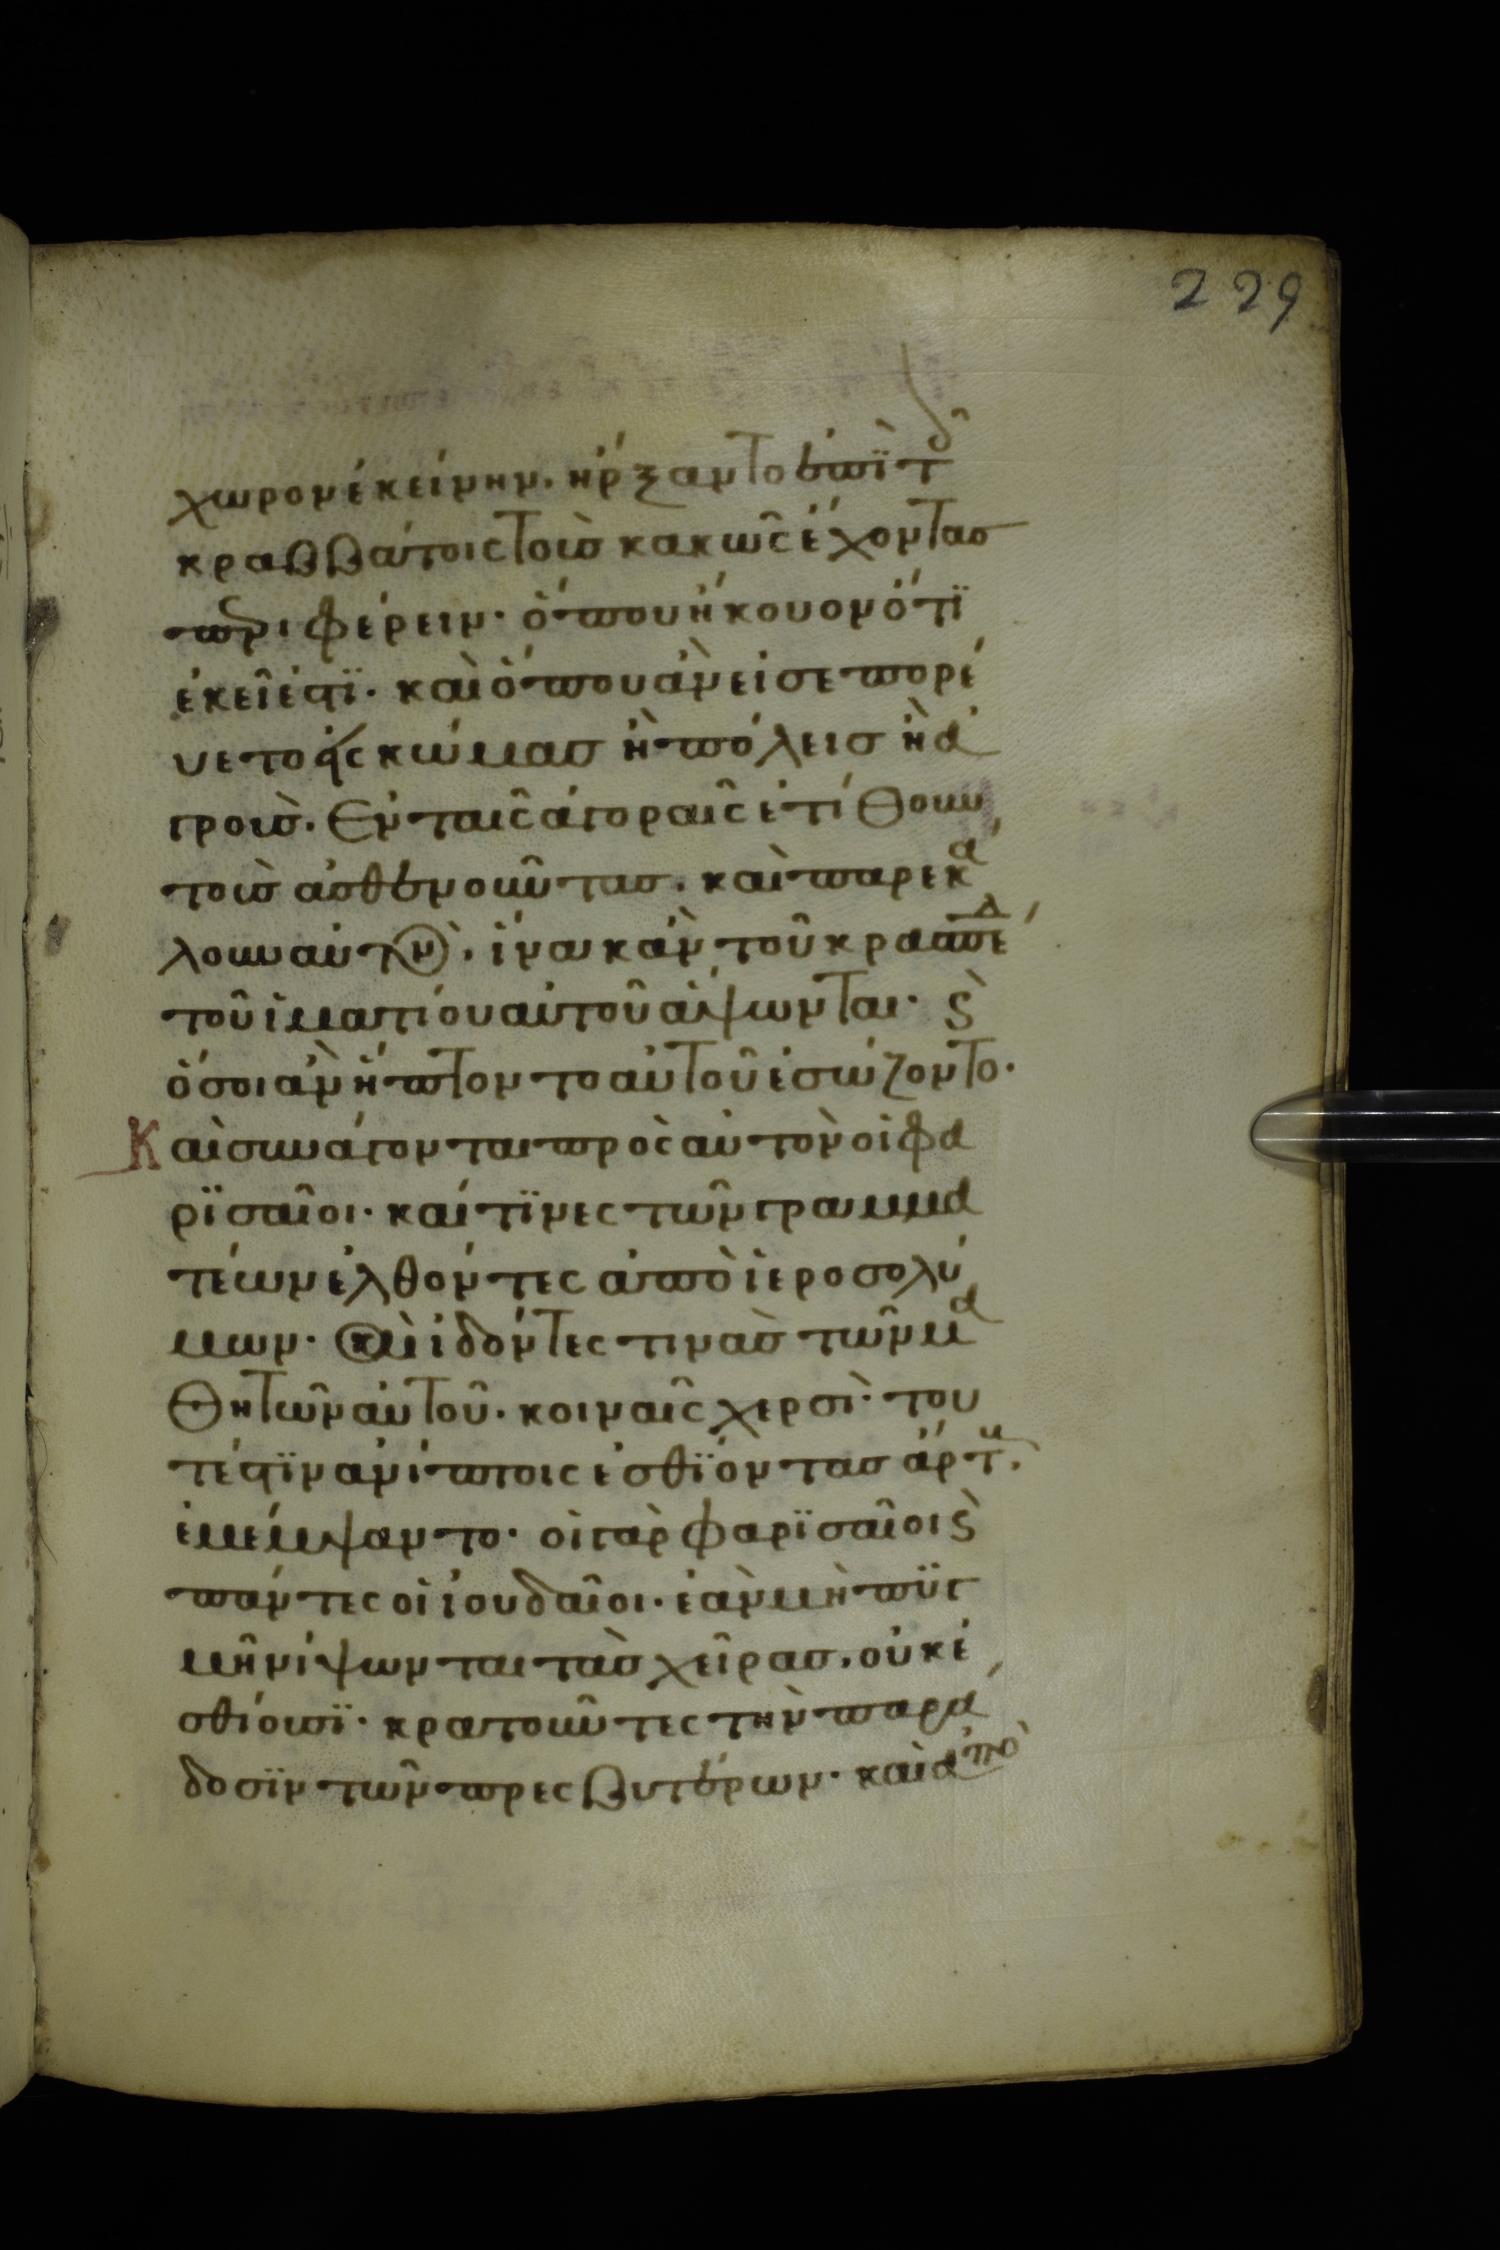 229
χωρον ἐκείνην. ἤρξαντο ἐπῒ τοῖς
κραββάτοις τοὺς κακῶς ἔχοντας
περιφέρειν· ὅπου ἤκουον ὅτϊ
ἐκεῖ ἐστϊ· καὶ ὅπου ἂν εἰσεπορέ
υετο εἰς κώμας ἢ πόλεις ἢ ἀ
γρους. Ἐν ταῖς ἀγοραῖς ἐτίθουν
τοὺς ἀσθενοῦντας. καὶ παρεκά
λουν αὐτὸν. ἵνα κἂν τοῦ κρασπέδ
τοῦ ἱματίου αὐτοῦ ἅψωνται· ϛ
ὅσοι ἂν ἥπτοντο αὐτοῦ ἐσώζοντο.
Καὶ συνάγονται πρὸς αὐτὸν οἱ φα
ρϊσαῖοι· καί τϊνες τῶν γραμμα
τέων ἐλθόντες ἀπὸ ἱεροσολύ
μων· καὶ ἰδόντες τινὰς τῶν μα
θητῶν αὐτοῦ· κοιναῖς χερσὶ· του
τέστϊν ἀνίπτοις ἐσθϊόντας ἄρτους.
ἐμέμψαντο· οἱ γὰρ φαρϊσαῖοι ϛ
πάντες οἱ ἰουδαῖοι· ἐὰν μὴ πϋγ
μῆ νίψωνται τὰς χεῖρας. οὐκ ἐ
σθίουσϊ· κρατοῦντες τὴν παρά
δοσϊν τῶν πρεσβυτέρων· καὶ ἀπὸ